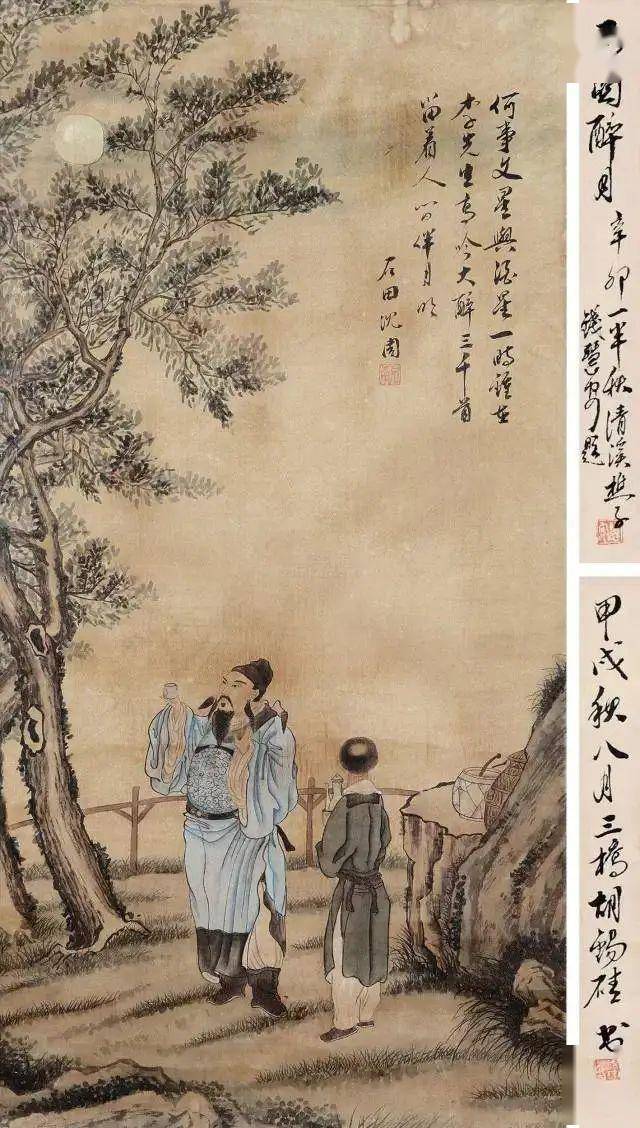 何事文星與酒星一時鍾在
李先生高吟大醉三千首
留着人间伴月明
石田沈周
醉月 辛卯一半秋清溪樵子
錢慧安題
甲戌秋八月三橋胡錫珪書